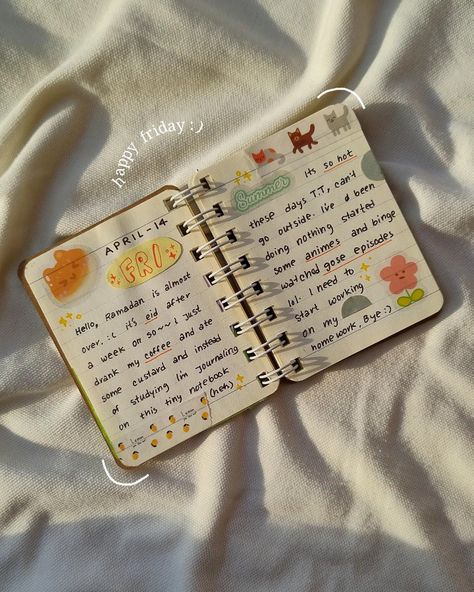 happy friday :)
APRIL-14
FRI
Hello, Ramadan is almost
over. :( it's eid after
a week or so~~ i just
drank my coffee and ate
some custard and instead
of studying I'm journaling
on this tiny notebook
(heh)
Lemon
Lemon
Summer
its so hot
these days T.T, can't
go outside. i've been
doing nothing started
some animes and binge
watched gose episodes
lol. I need to
start working
on my
homework, Bye :)